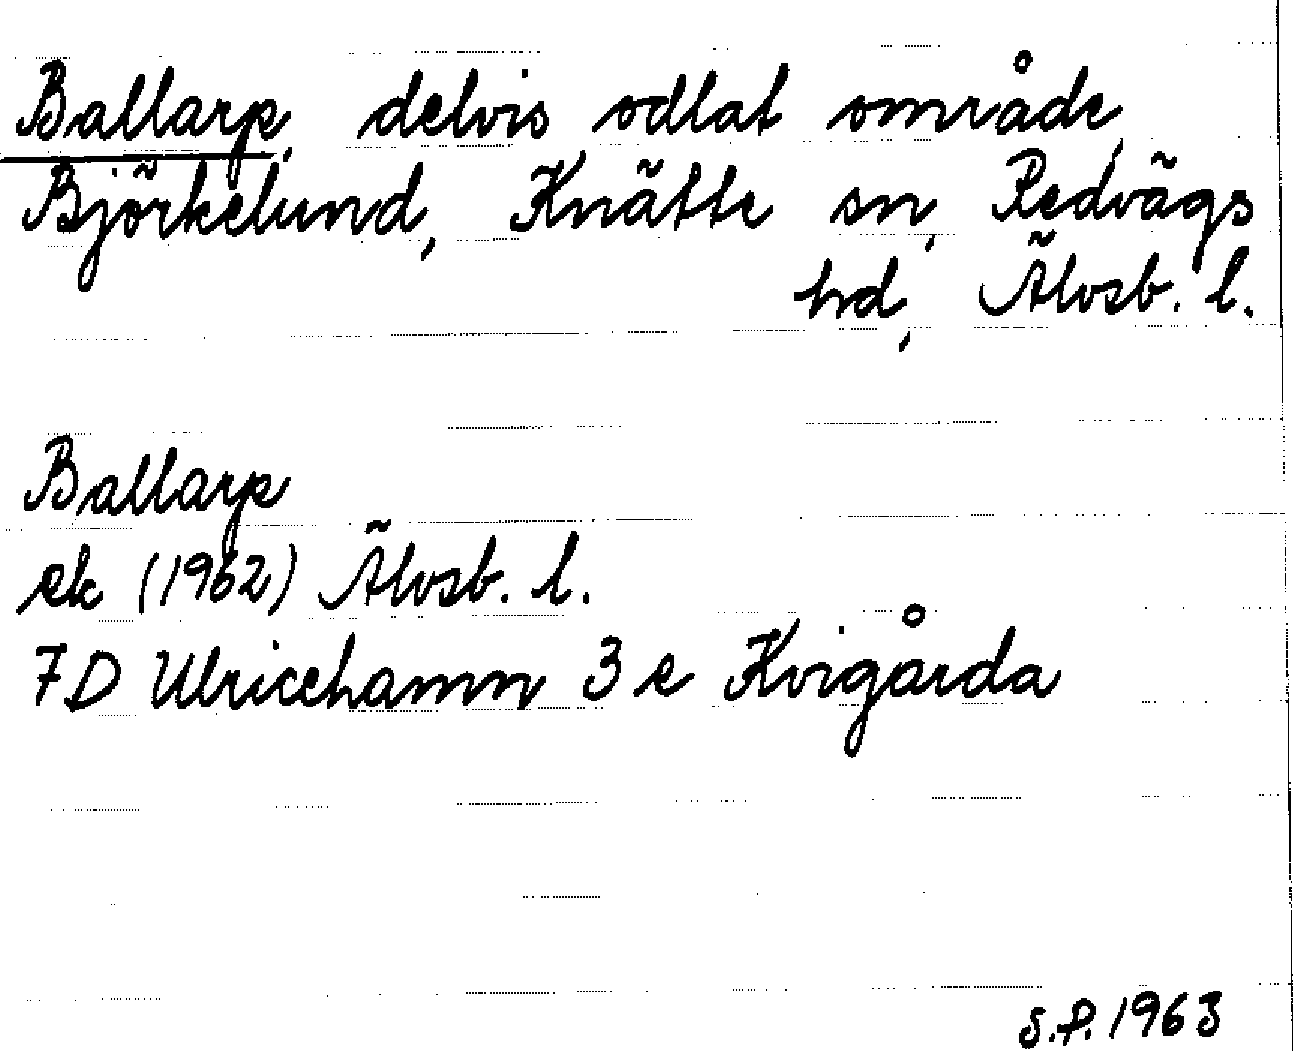 Ballarp, delvis odlat område,
Björkelund, Knätte sn, Redvägs
hd, Älvsb. l.
Ballarp
ek (1962) Älvsb. l.
7D Ulricehamn 3 e Kvigårda
S.P. 1963